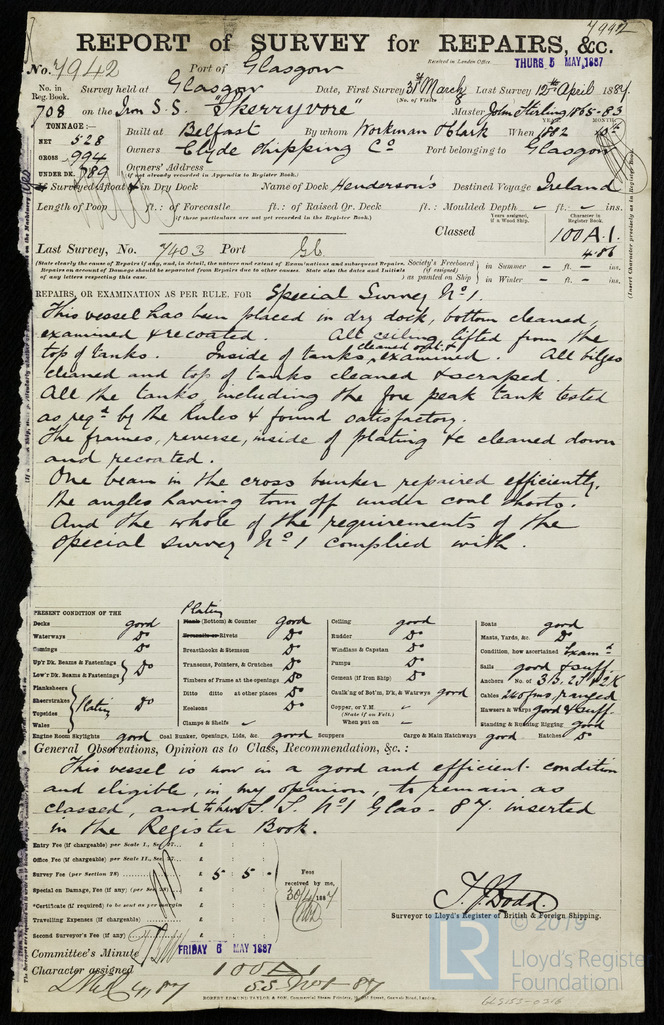 7942
REPORT of SURVEY for REPAIRS, &c.
No. 7942 Port of Glasgow Received in London Office THURS 5 MAY, 1887
No. in Reg. Book. Survey held at Glasgow Date, First Survey 31st March Last Survey 12th April 1887
(No. of Visits 8)
708 on the Iron S.S. "Skerryvore" Master John Stirling, 1865-83
TONNAGE:— YEAR. MONTH.
NET 528 Built at Belfast By whom Workman & Clark When 1882 10th
GROSS 994 Owners Clyde Shipping Co Port belonging to Glasgow
UNDER DK. 789 Owners' Address
(if not already recorded in Appendix to Register Book).
Surveyed Afloat & in Dry Dock Name of Dock Henderson's Destined Voyage Ireland
Length of Poop ft.: of Forecastle ft.: of Raised Qr. Deck ft.: Moulded Depth ft. ins.
(if these particulars are not yet recorded in the Register Book).
Years assigned, if a Wood Ship. Character in Register Book.
Classed 100 A.1.
4.86
Last Survey, No. 7403 Port Gls
(State clearly the cause of Repairs if any, and, in detail, the nature and extent of Examinations and subsequent Repairs.
Repairs on account of Damage should be separated from Repairs due to other causes. State also the dates and Initials
of any letters respecting this case.
Society's Freeboard (if assigned) as painted on Ship in Summer – ft. – ins.
in Winter – ft. – ins.
(Insert Character precisely as in Register Book.)
REPAIRS, OR EXAMINATION AS PER RULE. FOR Special Survey No. 1.
This vessel has been placed in dry dock, bottom cleaned,
examined & recoated. All ceiling lifted from the
top of tanks. Inside of tanks cleaned out & examined. All bilges
cleaned and top of tanks cleaned & scraped.
All the tanks, including the fore peak tank tested
as reqd. by the Rules & found satisfactory.
The frames, reverse, inside of plating &c cleaned down
and recoated.
One beam in the cross bunker repaired efficiently,
the angles having torn off under coal shoots.
And the whole of the requirements of the
special survey No. 1 complied with.
PRESENT CONDITION OF THE
Decks good
Waterways Do
Comings Do
Up'r Dk. Beams & Fastenings
Low'r Dk. Beams & Fastenings Do
Planksheers
Sheerstrakes
Topsides
Wales
Plating Do
Engine Room Skylights good
Plating (Bottom) & Counter good
Rivets Do
Breasthooks & Stemson Do
Transoms, Pointers, & Crutches Do
Timbers of Frame at the openings Do
Ditto ditto at other places Do
Keelsons Do
Clamps & Shelfs
Coal Bunker, Openings, Lids, &c. good
Ceiling good
Rudder Do
Windlass & Capstan Do
Pumps Do
Cement (if Iron Ship) Do
Caulk'ng of Bot'm, D'k, & Watrwys good
Copper, or Y.M.
(State if on Felt.)
When put on
Scuppers Cargo & Main Hatchways good
Boats good
Masts, Yards, &c. Do
Condition, how ascertained Examd
Sails good & suff.
Anchors No. of 3 B, 2 S & 2 K
Cables 240 fms, ranged
Hawsers & Warps good & suff.
Standing & Running Rigging good
Hatches Do
General Observations, Opinion as to Class, Recommendation, &c.:
This vessel is now in a good and efficient condition
and eligible, in my opinion, to remain as
classed, and to have S. S. No. 1 Glas - 87. inserted
in the Register Book.
Entry Fee (if chargeable) per Scale I., Sec. 27 £ : :
Office Fee (if chargeable) per Scale II., Sec. 27 £ : :
Survey Fee (per Section 28) £ 5 : 5 : -
Special on Damage, Fee (if any) (per Sec. 28) £ : :
*Certificate (if required) to be sent as per margin
Travelling Expenses (if chargeable) £ : :
Second Surveyor's Fee (if any) £ : :
Fees received by me, 30/4/1887
T. J. Dodd.
Surveyor to Lloyd's Register of British & Foreign Shipping.
Committee's Minute FRIDAY 6 MAY 1887
Character assigned 100 A 1
S.S. No 1 - 87
ROBERT EDMUND TAYLOR & SON, Commercial Steam Printers
© 2019
LR Lloyd's Register
Foundation
GLS153-0216